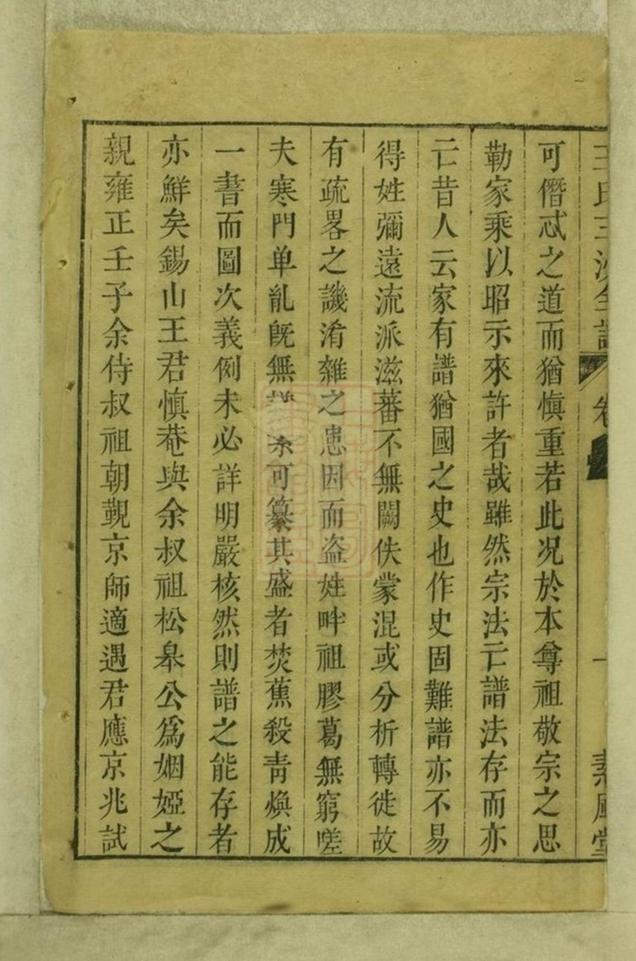 王氏三沙全譜 卷 一 素風堂
可僭忒之道而猶慎重若此况於本尊祖敬宗之思
勒家乘以昭示來許者哉雖然宗法亡譜法存而亦
亡昔人云家有譜猶國之史也作史固難譜亦不易
得姓彌遠流派滋蕃不無闕佚蒙混或分析轉徙故
有疏畧之譏淆雜之患因而盗姓畔祖膠葛無窮嗟
夫寒門单胤旣無系可纂其盛者焚蕉殺青煥成
一書而圖次義例未必詳明嚴核然則譜之能存者
亦鮮矣錫山王君慎菴與余叔祖松皋公爲姻婭之
親雍正壬子余侍叔祖朝覲京師適遇君應京兆試